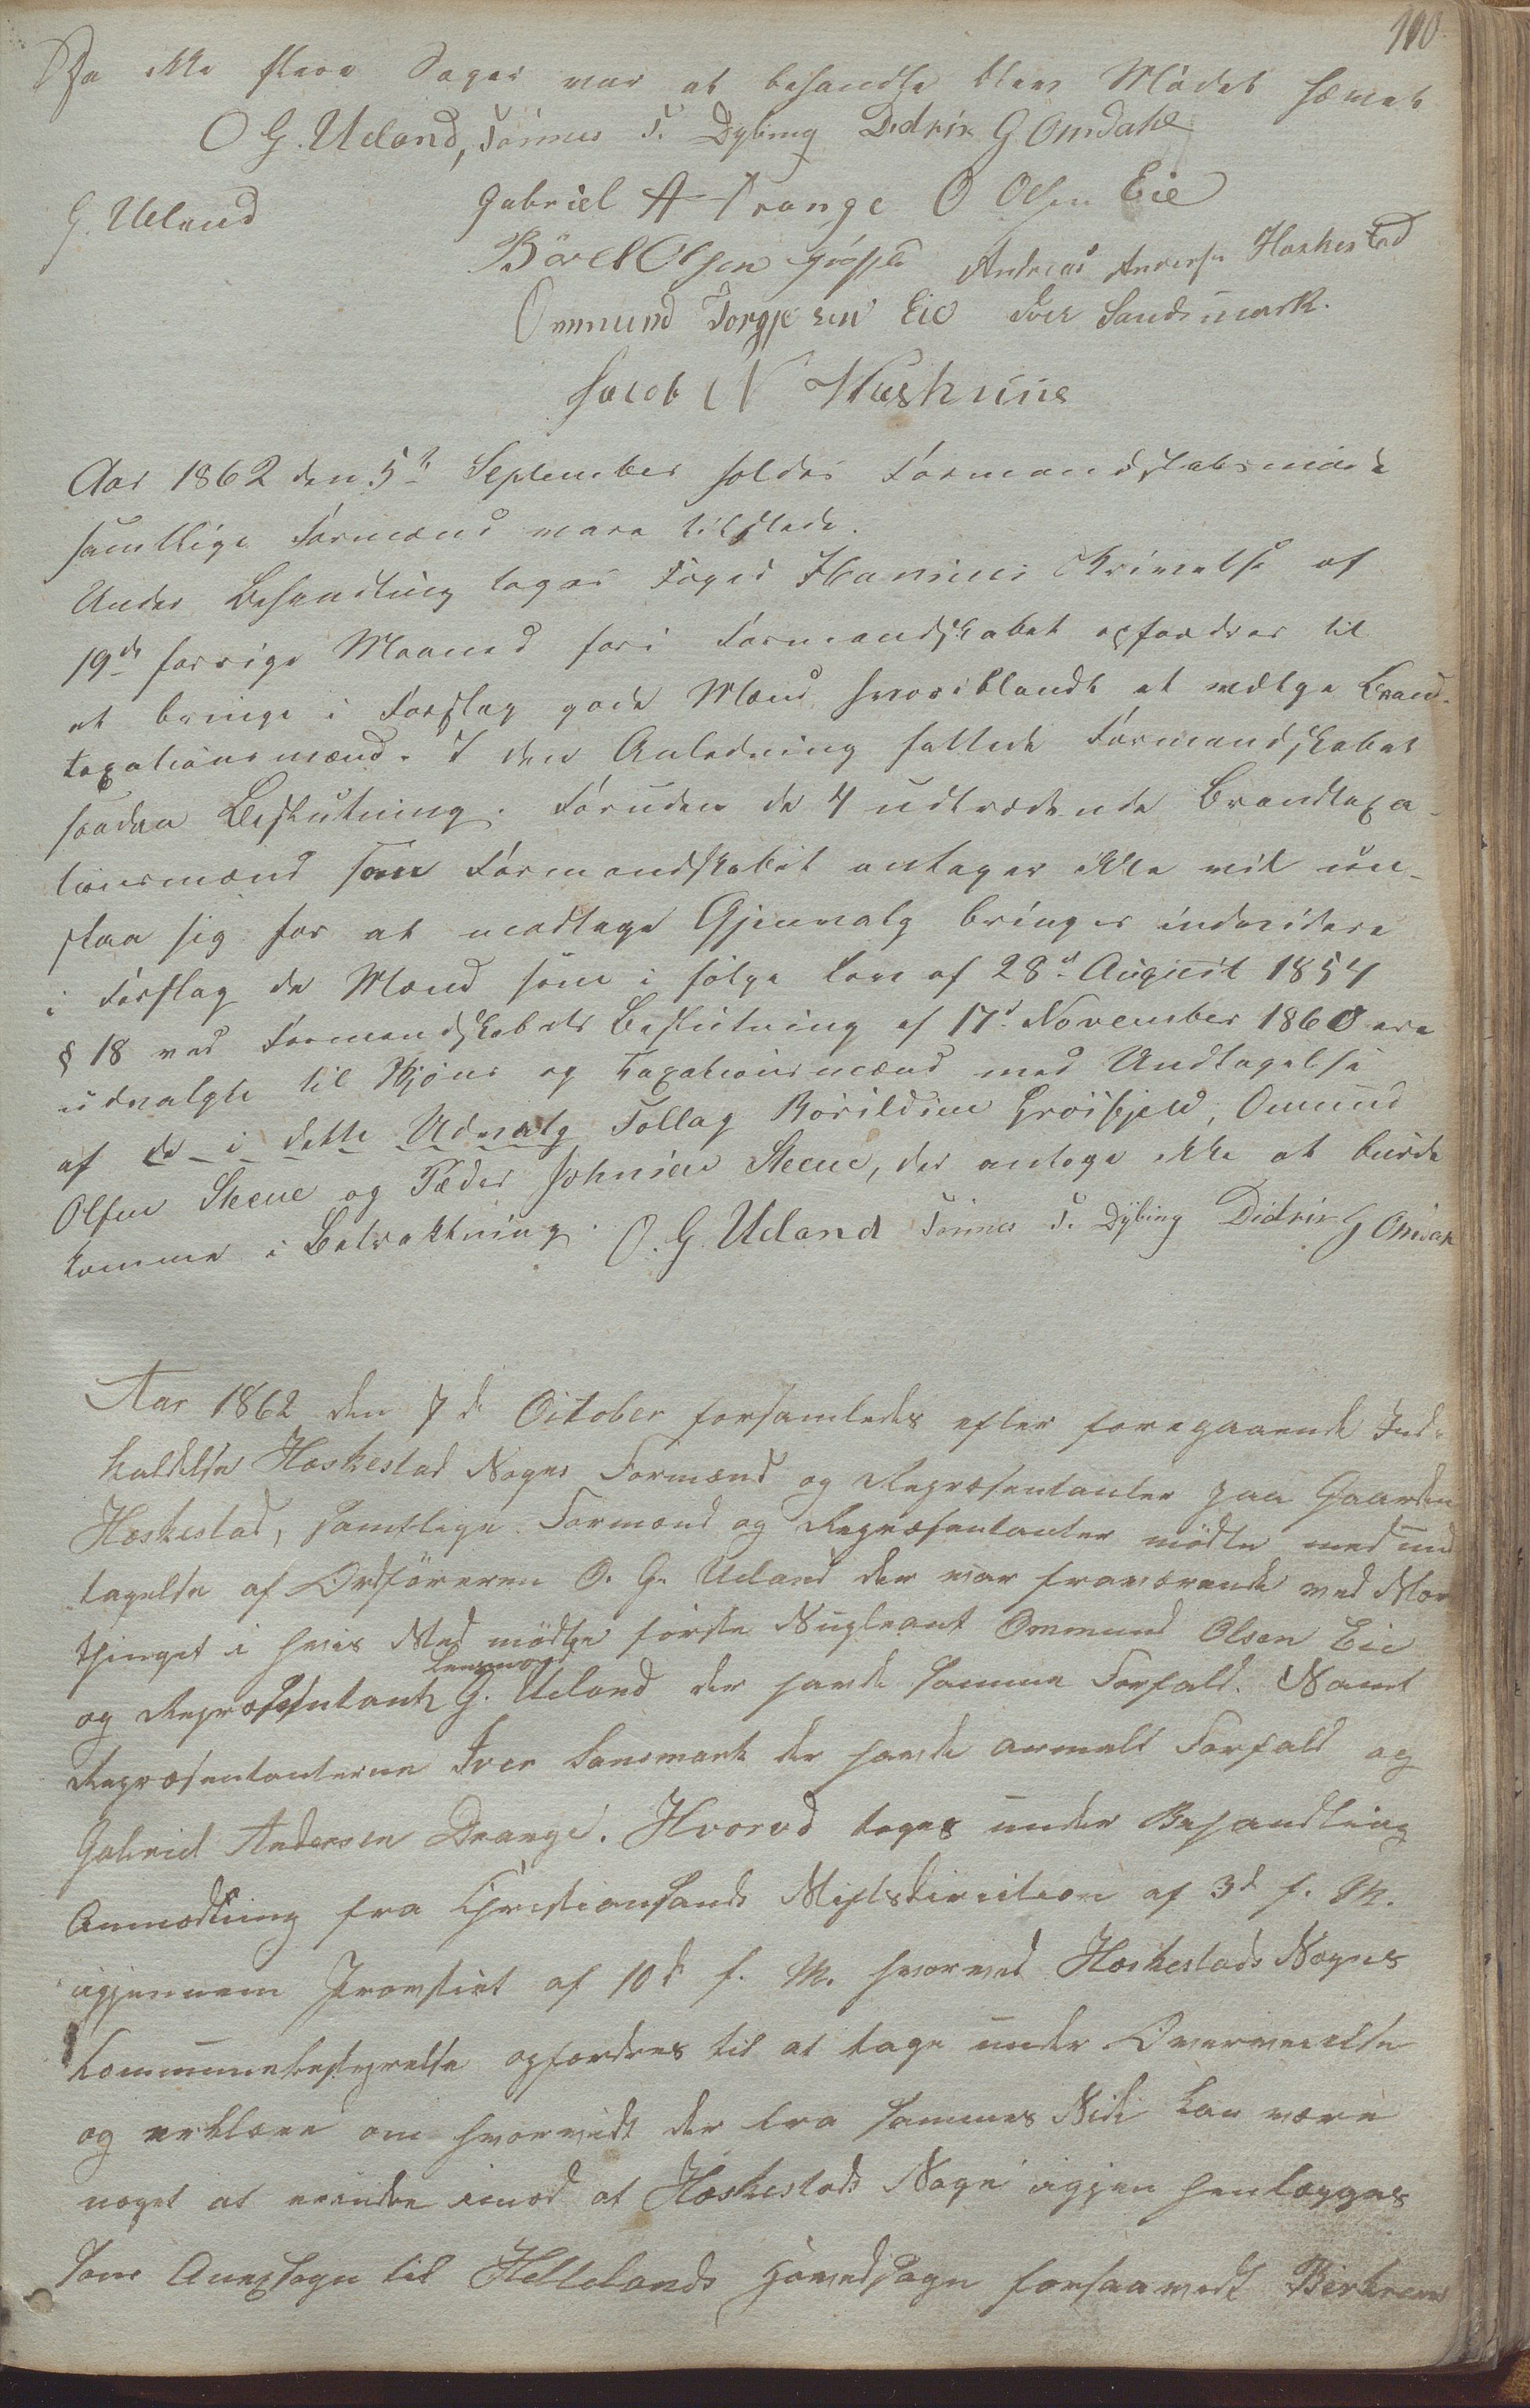 110.
Da ikke flere Sager var at behandle blev Mødet hævet
O G. Ueland, Tønnes T. Dybing Didrik G Omdahl
G. Ueland
Gabriel A Drange O Olsen Eie
Bårel Olsen Andreas Andersen Heskestad
Ommund Torgjersen Eie Iver Sandsmark.
Jacob N
Aar 1862 den 5te September holdes Formandskabsmøde
samtlige Formænd vare tilstede.
Under Behandling toges Foged Skrivelse af
19de forrige Maaned hvori Formandskabet opfordres til
at bringe i Forslag gode Mænd hvoriblandt at vælge Brand-
taxationsmænd. I den Anledning fattede Formandskabet
saadan Beslutning. Foruden de 4 udtrædende Brandtaxa-
tionsmænd som Formandskabet antager ikke vil und-
slaa sig for at modtage Gjenvalg bringes indvidere
i Forslag de Mænd som i følge Lov af 28de August 1854
§ 18 ved Formandskabets Beslutning af 17d November 1860 ere
udvalgte til Skjøns og Taxationsmænd med Undtagelse
af de i dette Udvalg Tollag Børildsen Grøsfjeld, Omund
Olsen Skeene og Peder Johnsen Skeene, der antoges ikke at burde
komme i Betraktning. O. G. Ueland Tønnes T. Dybing Didrik G Omdah
Aar 1862 den 7de October forsamledes efter foregaaende Ind-
kaldelse Heskestad Sogns Formænd og Repræsentanter paa Gaarden
Heskestad, samtlige Formænd og Repræsentanter mødte med und
tagelse af Ordføreren O. G. Ueland der var fraværende ved Stor
thinget i hvis Sted mødte første Supleant Ommund Olsen Eie
Lensmand
og Repræsentant G. Ueland der havde samme Forfald. Samt
Repræsentanterne Iver Sansmark der havde anmelt Forfald og
Gabriel Andersen Drange. Hvorved toges under Behandling
Anmodning fra Christiansands Stiftsdirection af 3d f. M.
igjennem Provstiet af 10d f. M. hvorved Heskestads Sogns
Kommunebestyrelse opfordres til at tage under Overveielse
og erklære om hvorvidt der fra sammes Side kan være
noget at erindre imod at Heskestads Sogn igjen henlægges
som Annexsogn til Hellelands Hovedsogn forsaavidt Birkrem